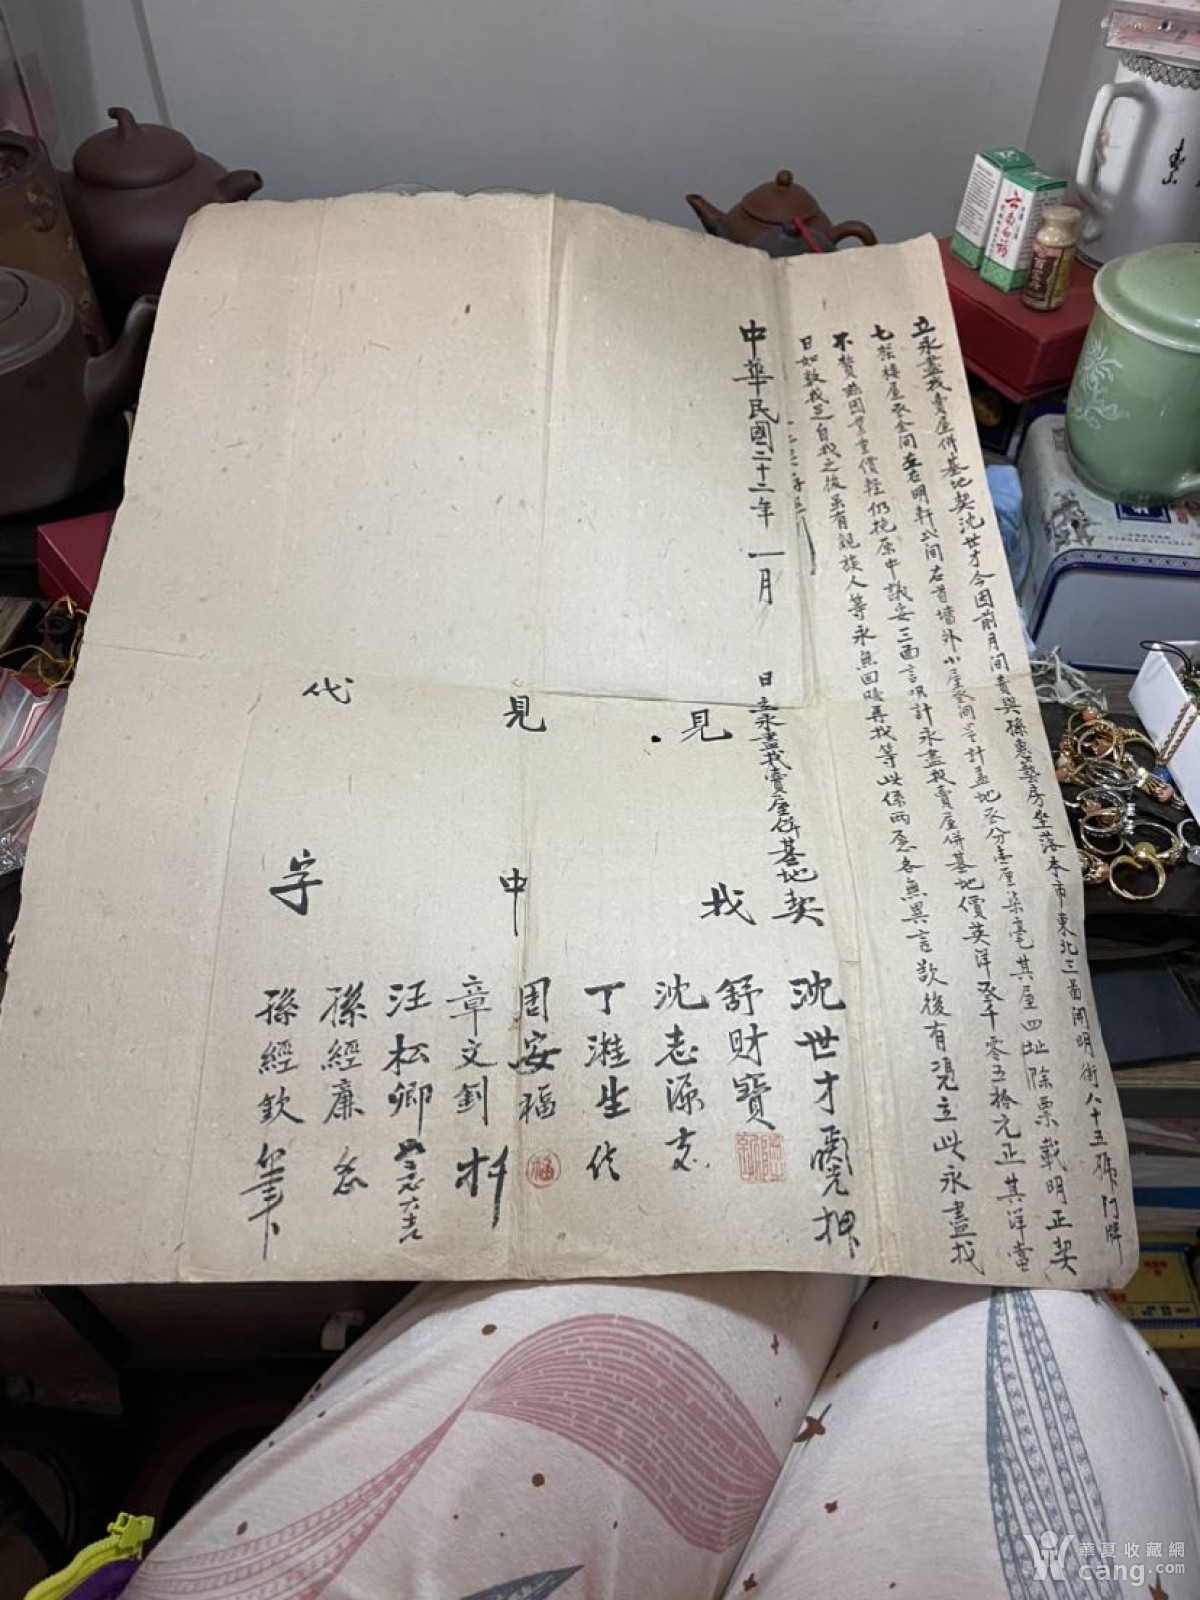 立永盡找賣屋併基地契沈世才今因前月間賣與孫惠藝房坐落本市東北三啚開明街八十五號門牌
七架樓屋叁全間並右明軒弍間右首墻外小屋叁間共計基地叁分壹厘柒毫其屋四址除票載明正契
不贅茲因業重價輕仍挽原中議妥三面言明計永盡找賣屋併基地價英洋叁千零五拾元正其洋當
日如數找足自找之後竝有親族人等永無回贖再找等此係兩愿各無異言欲後有憑立此永盡找
中華民國二十二年 一月 日立永盡找賣屋併基地契 沈世才 押
見找 舒財寶
沈志源
丁漋生
見中 周安福
福
章文釗
汪松卿
孫經廉
代字 孫經欽 筆
云南白药
華夏收藏網
cang.com